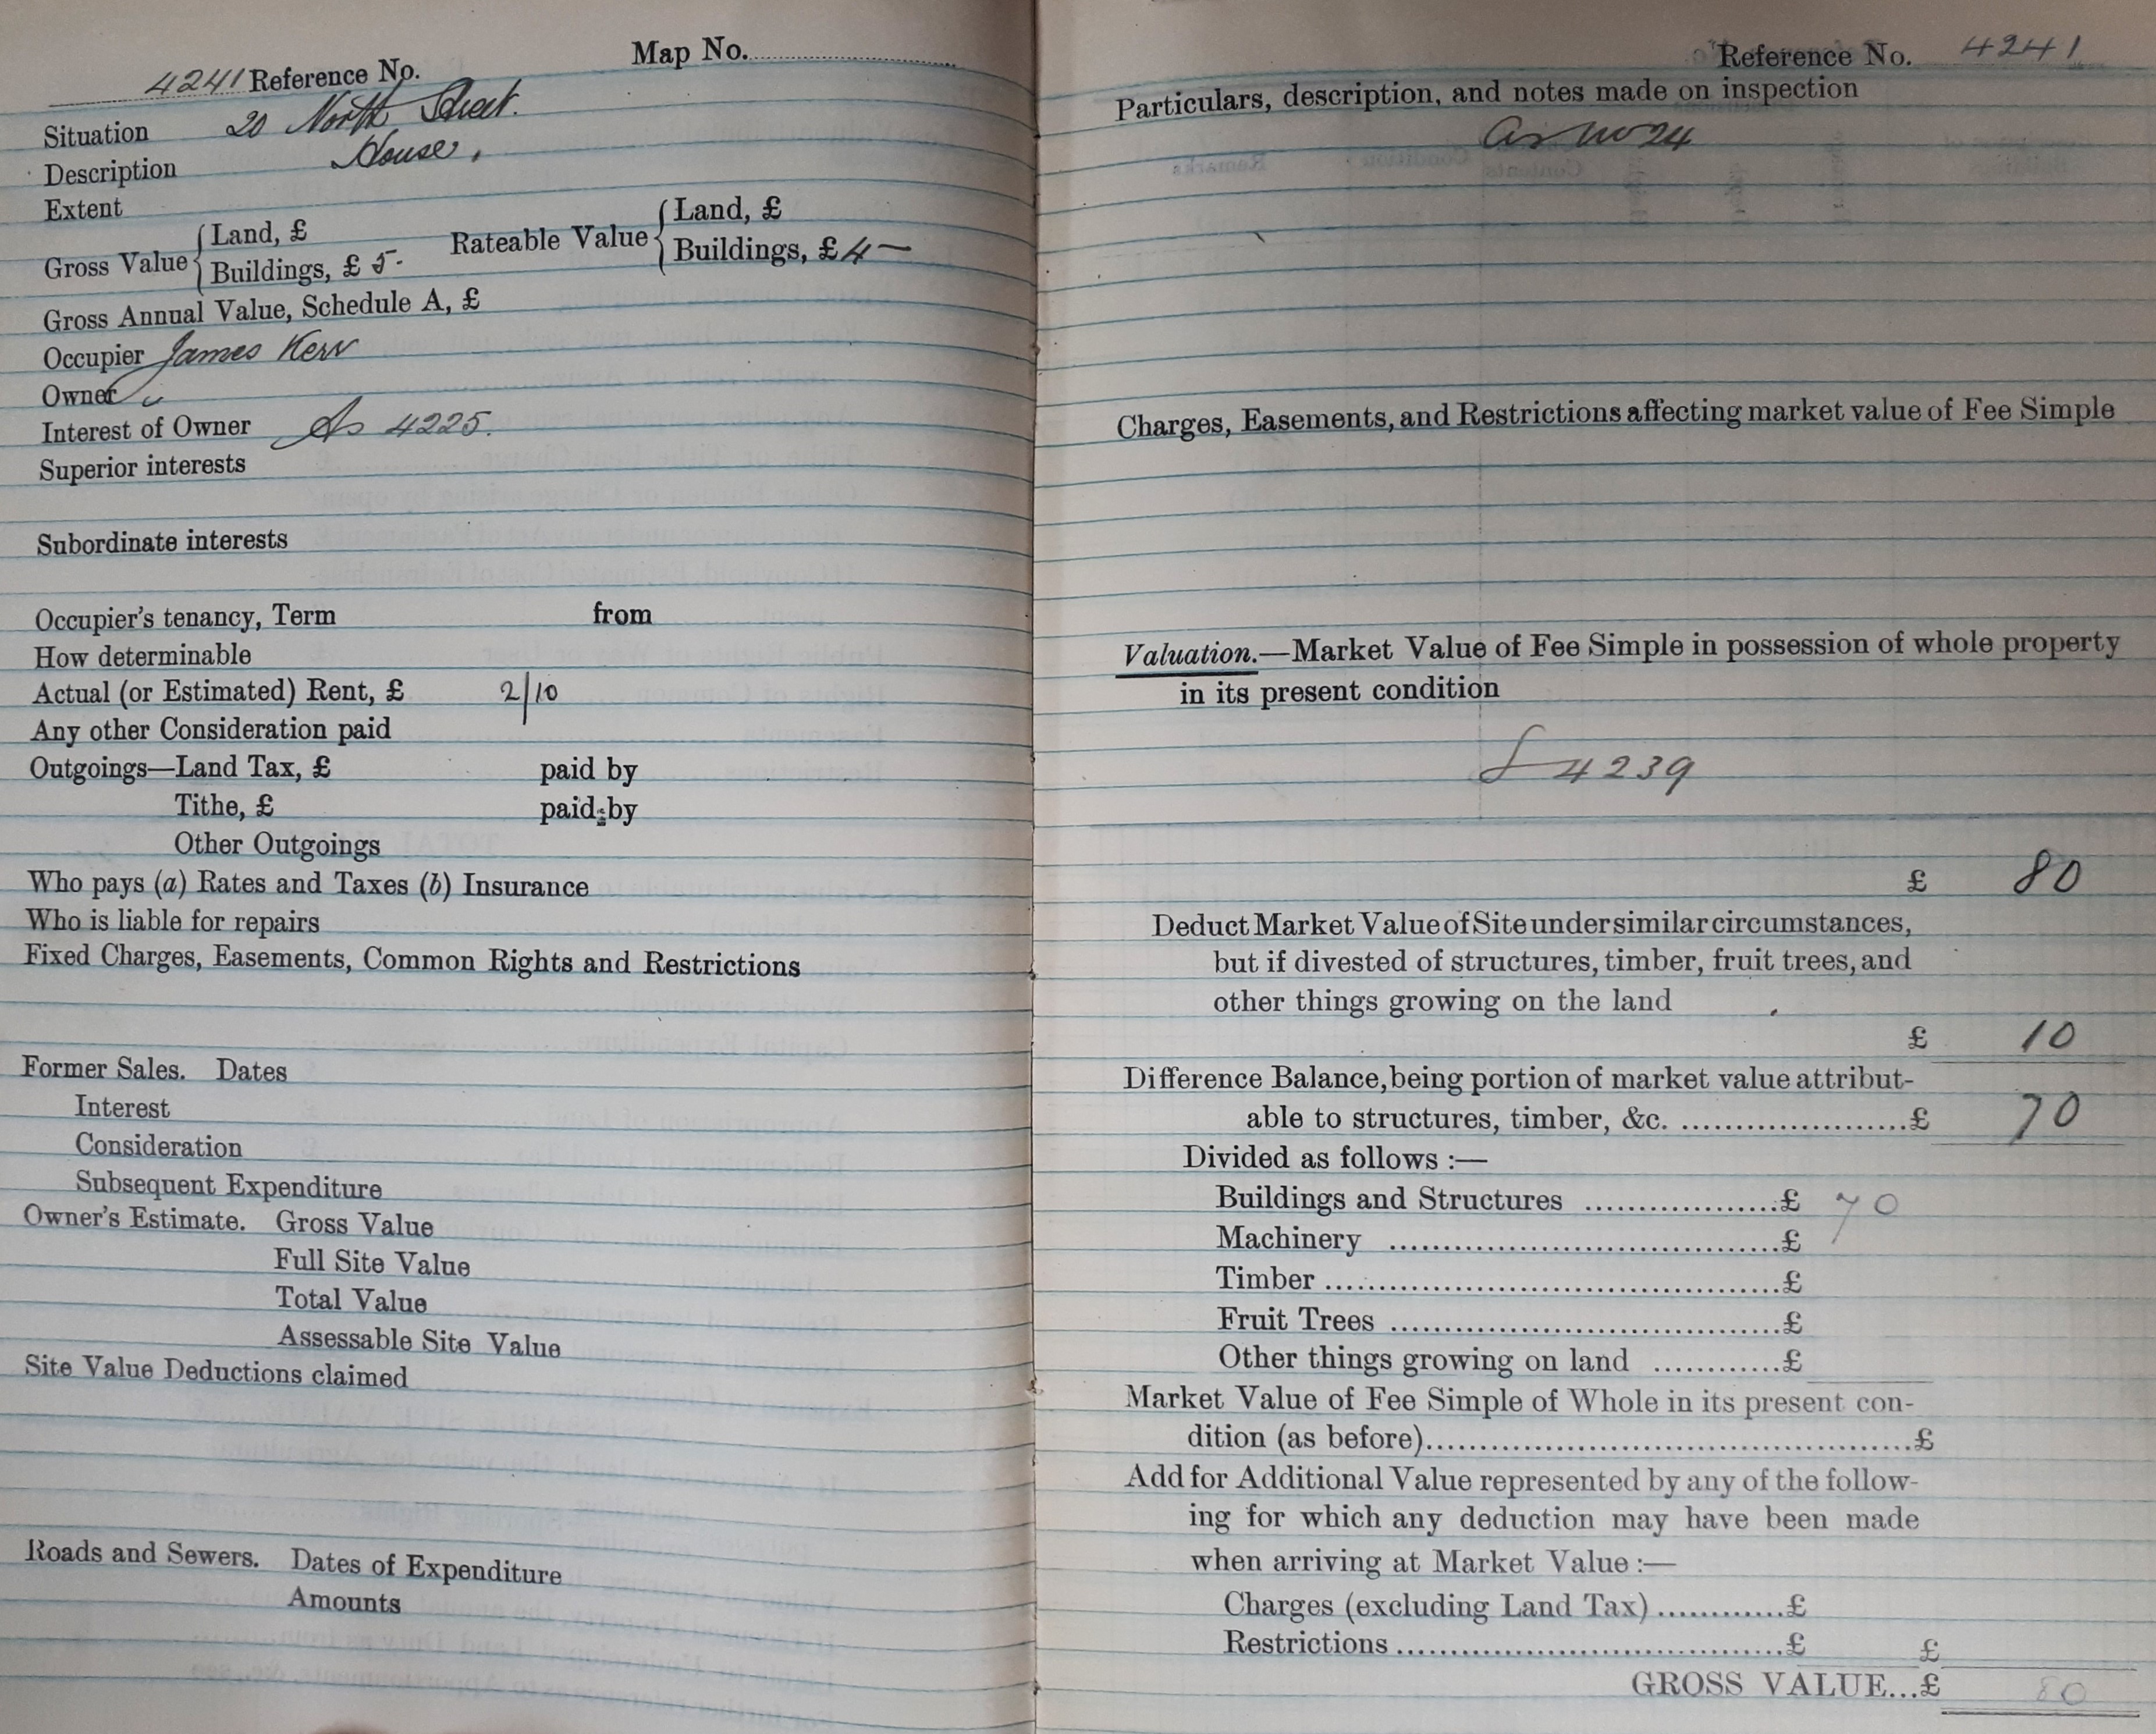 Map No.
4241 Reference No.
Situation 20 North Street.
Description House,
Extent
Gross Value { Land, £
Buildings, £ 5-
Rateable Value { Land, £
Buildings, £ 4 —
Gross Annual Value, Schedule A, £
Occupier James Kerr
Owner
Interest of Owner As 4225.
Superior interests
Subordinate interests
Occupier's tenancy, Term from
How determinable
Actual (or Estimated) Rent, £ 2/10
Any other Consideration paid
Outgoings—Land Tax, £ paid by
Tithe, £ paid by
Other Outgoings
Who pays (a) Rates and Taxes (b) Insurance
Who is liable for repairs
Fixed Charges, Easements, Common Rights and Restrictions
Former Sales. Dates
Interest
Consideration
Subsequent Expenditure
Owner's Estimate. Gross Value
Full Site Value
Total Value
Assessable Site Value
Site Value Deductions claimed
Roads and Sewers. Dates of Expenditure
Amounts
Reference No. 4241
Particulars, description, and notes made on inspection
as no 24
Charges, Easements, and Restrictions affecting market value of Fee Simple
Valuation.—Market Value of Fee Simple in possession of whole property
in its present condition
£ 4239
£ 80
Deduct Market Value of Site under similar circumstances,
but if divested of structures, timber, fruit trees, and
other things growing on the land
£ 10
Difference Balance, being portion of market value attribut-
able to structures, timber, &c. ......................£ 70
Divided as follows :—
Buildings and Structures ...................£ 70
Machinery ......................................£
Timber .............................................£
Fruit Trees ......................................£
Other things growing on land ............£
Market Value of Fee Simple of Whole in its present con-
dition (as before)................................................£
Add for Additional Value represented by any of the follow-
ing for which any deduction may have been made
when arriving at Market Value :—
Charges (excluding Land Tax) ............£
Restrictions .....................................£ £
GROSS VALUE...£ 80